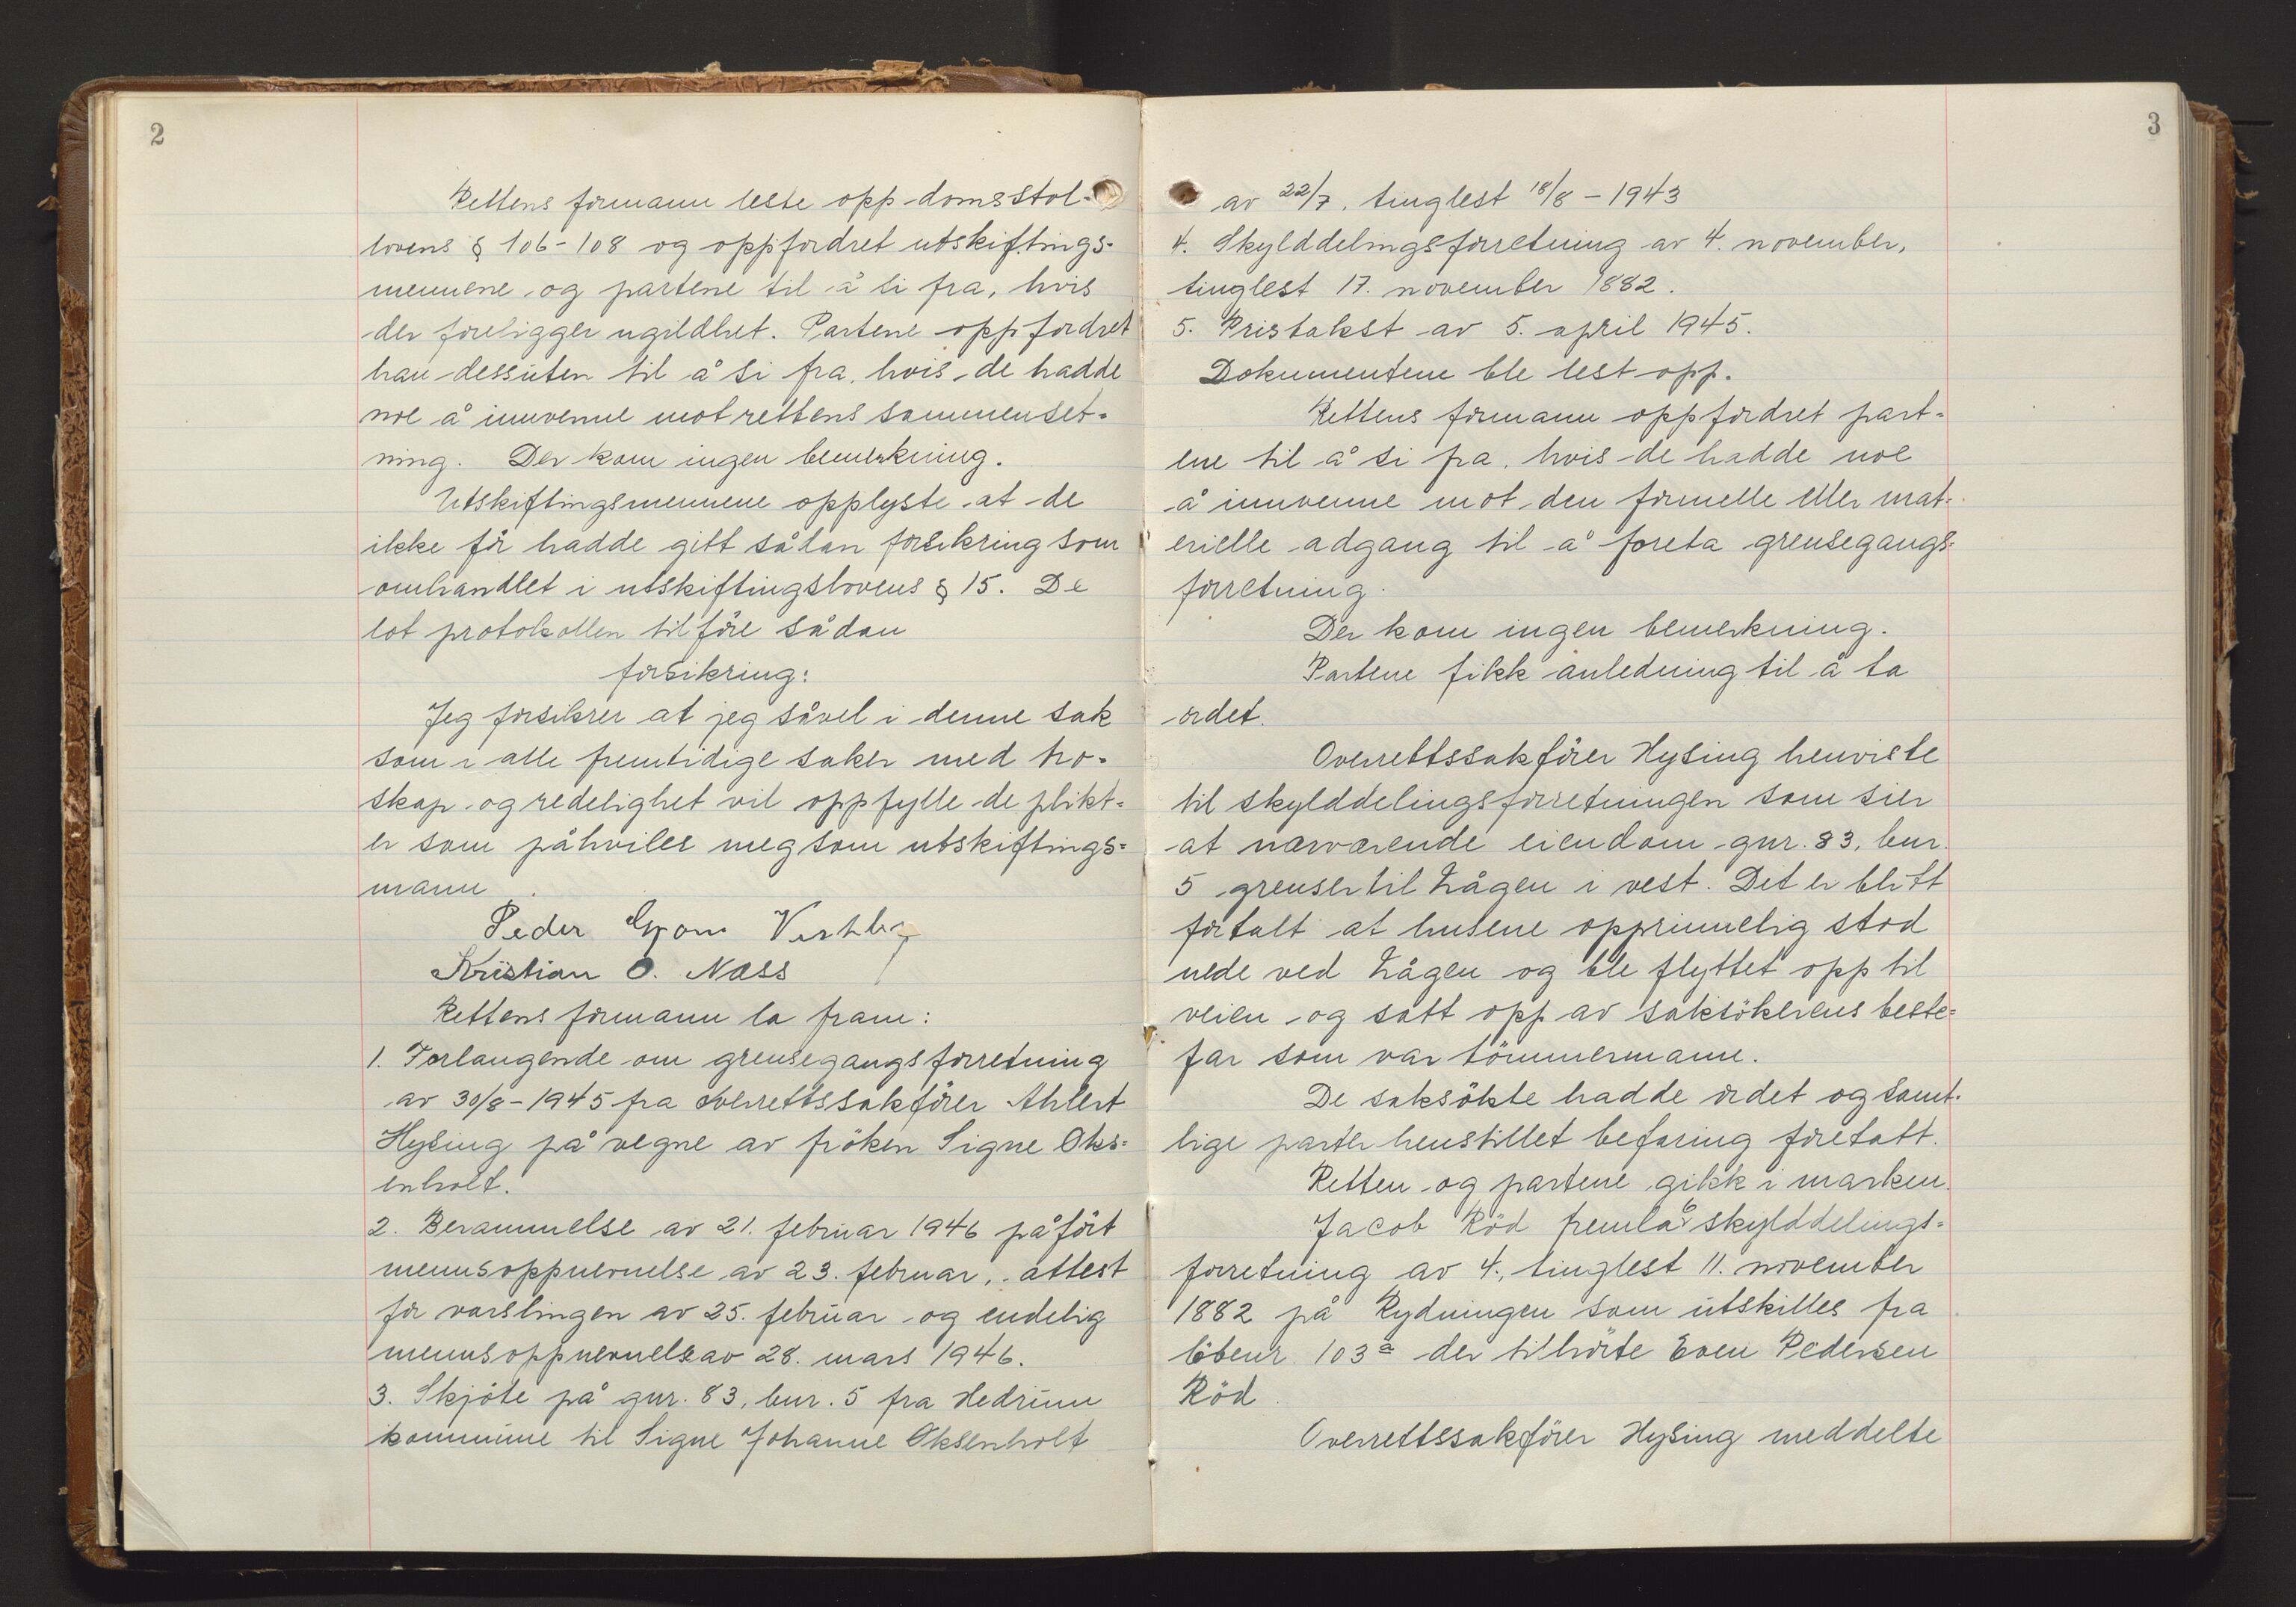 2
Rettens formann leste opp domsstol-
lovens § 106-108 og oppfordret utskiftings-
mennene og partene til å si fra, hvis
der foreligger ugildhet. Partene oppfordret
han dessuten til å si fra, hvis de hadde
noe å innvenne mot rettens sammenset-
ning. Der kom ingen bemerkning.
Utskiftingsmennene opplyste at de
ikke för hadde gitt sådan forsikring som
omhandlet i utskiftingslovens § 15. De
lot protokollen tilföre sådan
forsikring:
Jeg forsikrer at jeg såvel i denne sak
som i alle fremtidige saker med tro-
skap og redelighet vil oppfylle de plikt-
er som påhviler meg som utskiftings-
mann.
Peder
Kristian O. Næss
Rettens formann la fram:
1. Forlangende om grensegangsforretning
av 30/8-1945 fra overrettssakförer Ahlert
Hysing på vegne av fröken Signe Oks-
enholt.
2. Berammelse av 21. februar 1946 påfört
mennsoppnevnelse av 23. februar, attest
for varslingen av 25. februar og endelig
mennsoppnevnelse av 28. mars 1946.
3. Skjöte på gnr. 83, bnr. 5 fra Hedrum
kommune til Signe Johanne Oksenholt
3
av 22/7, tinglest 18/8 - 1943
4. Skylddelingsforretning av 4. november,
tinglest 17. november 1882.
5. Pristakst av 5. april 1945.
Dokumentene ble lest opp.
Rettens formann oppfordret part-
ene til å si fra, hvis de hadde noe
å innvenne mot den formelle eller mat-
erielle adgang til å foreta grensegangs-
forretning.
Der kom ingen bemerkning.
Partene fikk anledning til å ta
ordet.
Overrettssakförer Hysing henviste
til skylddelingsforretningen som sier
at nærværende eiendom gnr. 83, bnr.
5 grenser til Lågen i vest. Det er blitt
fortalt at husene opprinnelig stod
nede ved Lågen og ble flyttet opp til
veien og satt opp av saksökerens beste-
far som var tömmermann.
De saksökte hadde ordet og samt-
lige parter henstillet befaring foretatt.
Retten og partene gikk i marken.
Jacob Röd fremla 6 skylddelings-
forretning av 4., tinglest 11. november
1882 på Rydningen som utskilles fra
löbenr. 103a der tilhörte Even Pedersen
Röd.
Overrettssakförer Hysing meddelte